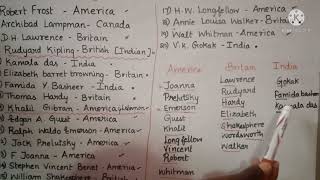 Robert Frost - America
Archibald Lampman - Canada
D.H. Lawrence - Britain
Rudyard Kipling - British [Indian]
Kamala das - India
Elizabeth barret browning - Britain
Famida Y Basheer - India
Thomas Hardy - Britain
Khalil Gibran - America
Edgar A. Guest - America
Ralph Waldo Emerson - America
Jack Prelutsky - America
F. Joanna - America
Vincent - America
William Shakespeare - Britain
17) H.W. Longfellow - America
18) Annie Louisa Walker - Britain
19) Walt Whitman - America
20) V.K. Gokak - India
America Britain India
Joanna Lawrence Gokak
Prelutsky Rudyard Famida basheer
Emerson Hardy Kamala das
Guest Elizabeth
Khalil Shakesphere
Longfellow wordsworth
Vincent Walker
Robert
Whitman